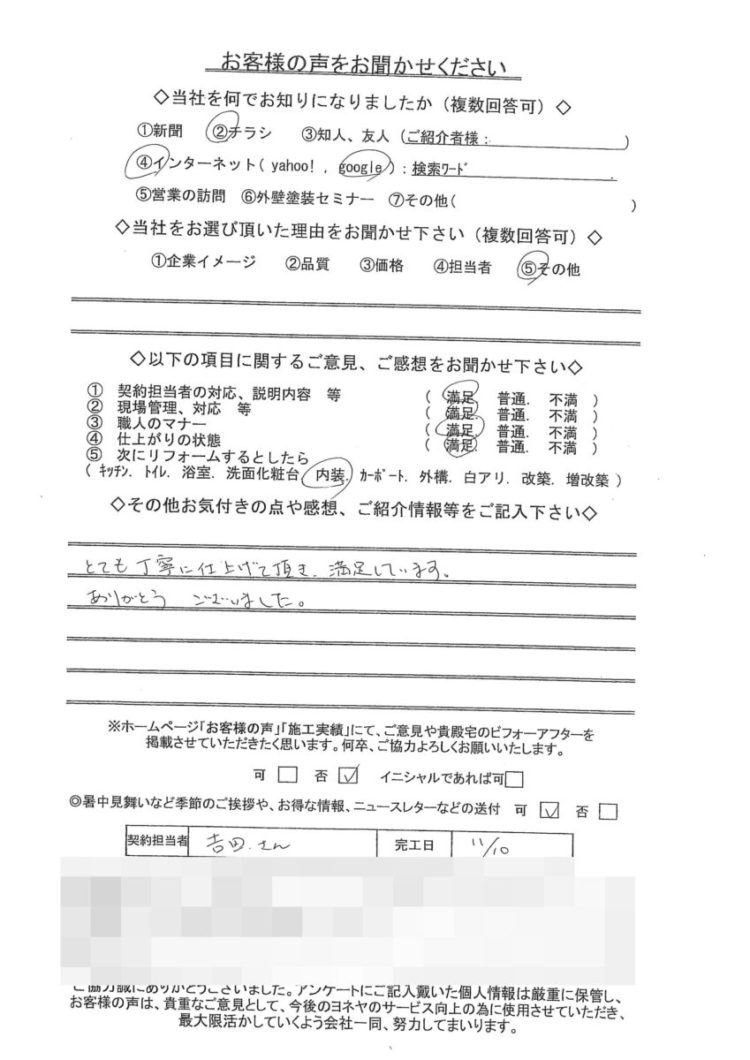 お客様の声をお聞かせください
◇当社を何でお知りになりましたか（複数回答可）◇
①新聞　②チラシ　③知人、友人（ご紹介者様：　　　　　　）
④インターネット( yahoo! , google ) : 検索ﾜｰﾄﾞ
⑤営業の訪問　⑥外壁塗装セミナー　⑦その他(　　　　　　)
◇当社をお選び頂いた理由をお聞かせ下さい（複数回答可）◇
①企業イメージ　②品質　③価格　④担当者　⑤その他
◇以下の項目に関するご意見、ご感想をお聞かせ下さい◇
①　契約担当者の対応、説明内容　等　（　満足.　普通.　不満　）
②　現場管理、対応　等　（　満足.　普通.　不満　）
③　職人のマナー　（　満足.　普通.　不満　）
④　仕上がりの状態　（　満足.　普通.　不満　）
⑤　次にリフォームするとしたら
( ｷｯﾁﾝ. ﾄｲﾚ. 浴室. 洗面化粧台. 内装. ｶｰﾎﾟｰﾄ. 外構. 白アリ. 改築. 増改築 )
◇その他お気付きの点や感想、ご紹介情報等をご記入下さい◇
とても丁寧に仕上げて頂き、満足しています。
ありがとう　ございました。
※ホームページ「お客様の声」「施工実績」にて、ご意見や貴殿宅のビフォーアフターを
掲載させていただきたく思います。何卒、ご協力よろしくお願いいたします。
可 □　否 ☑　イニシャルであれば可□
◎暑中見舞いなど季節のご挨拶や、お得な情報、ニュースレターなどの送付　可 ☑　否 □
契約担当者　吉田.さん　完工日　11/10
ご協力誠にありがとうございました。アンケートにご記入戴いた個人情報は厳重に保管し、
お客様の声は、貴重なご意見として、今後のヨネヤのサービス向上の為に使用させていただき、
最大限活かしていくよう会社一同、努力してまいります。